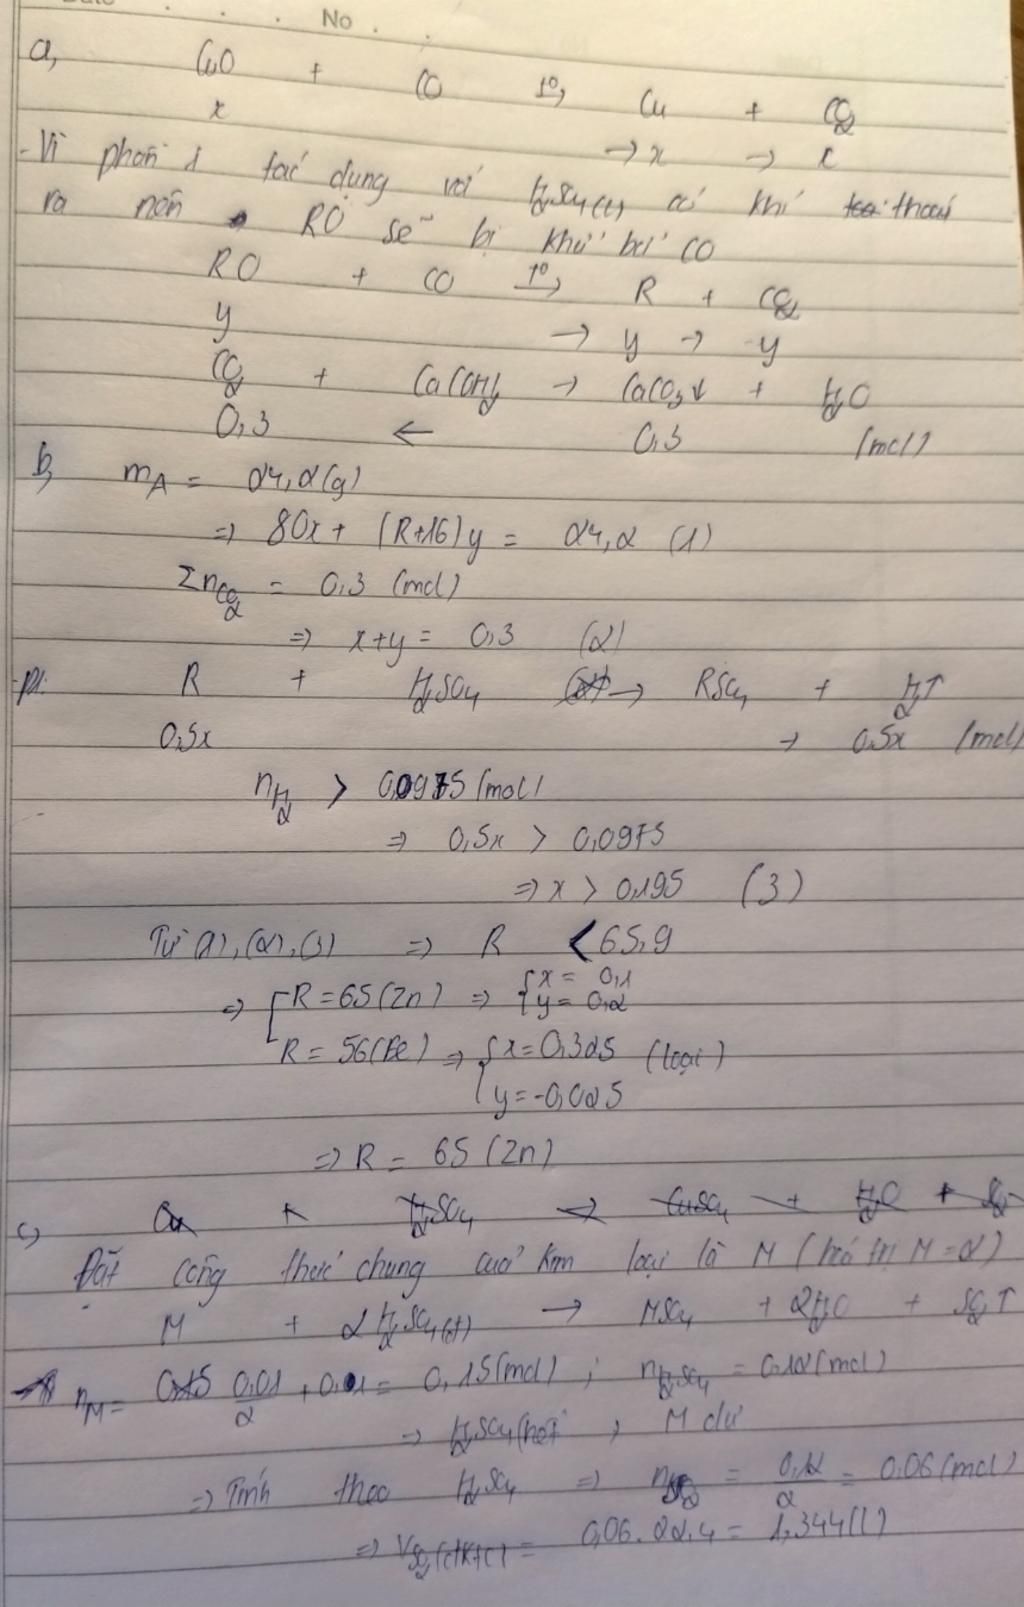 No
a, CuO + CO t°→ Cu + CO2
x → x → x
- Vì phần 1 tác dụng với H2SO4(l) có khí thoát
ra nên RO sẽ bị khử bởi CO
RO + CO t°→ R + CO2
y → y → y
CO2 + Ca(OH)2 → CaCO3↓ + H2O
0,3 ← 0,3 (mol)
b, mA = 24,2(g)
=> 80x + (R+16)y = 24,2 (1)
ΣnCO2 = 0,3 (mol)
=> x+y = 0,3 (2)
-p1: R + H2SO4 → RSO4 + H2↑
0,5x → 0,5x (mol)
nH2 > 0,0975 (mol)
=> 0,5x > 0,0975
=> x > 0,195 (3)
Từ (1), (2), (3) => R < 65,9
=> [ R = 65 (Zn) => { x = 0,1
y = 0,2
R = 56 (Fe) => { x = 0,325 (loại)
y = -0,025
=> R = 65 (Zn)
c, Cu + H2SO4 → CuSO4 + H2O +
Đặt công thức chung của kim loại là M (hoá trị M = 2)
M + 2H2SO4(đ) → MSO4 + 2H2O + SO2↑
nM = 0,01/2 + 0,01 = 0,15 (mol) ; nH2SO4 = 0,12 (mol)
=> H2SO4 hết, M dư
=> Tính theo H2SO4 => nSO2 = 0,12/2 = 0,06 (mol)
=> VSO2(đktc) = 0,06.22,4 = 1,344(l)